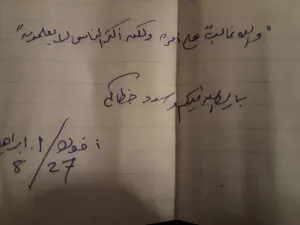 "والله غالب على أمره ولكن أكثر الناس لا يعلمون"
بارك الله فيكم وسدد خطاكم
أخوكم / ابراهيم
27/8